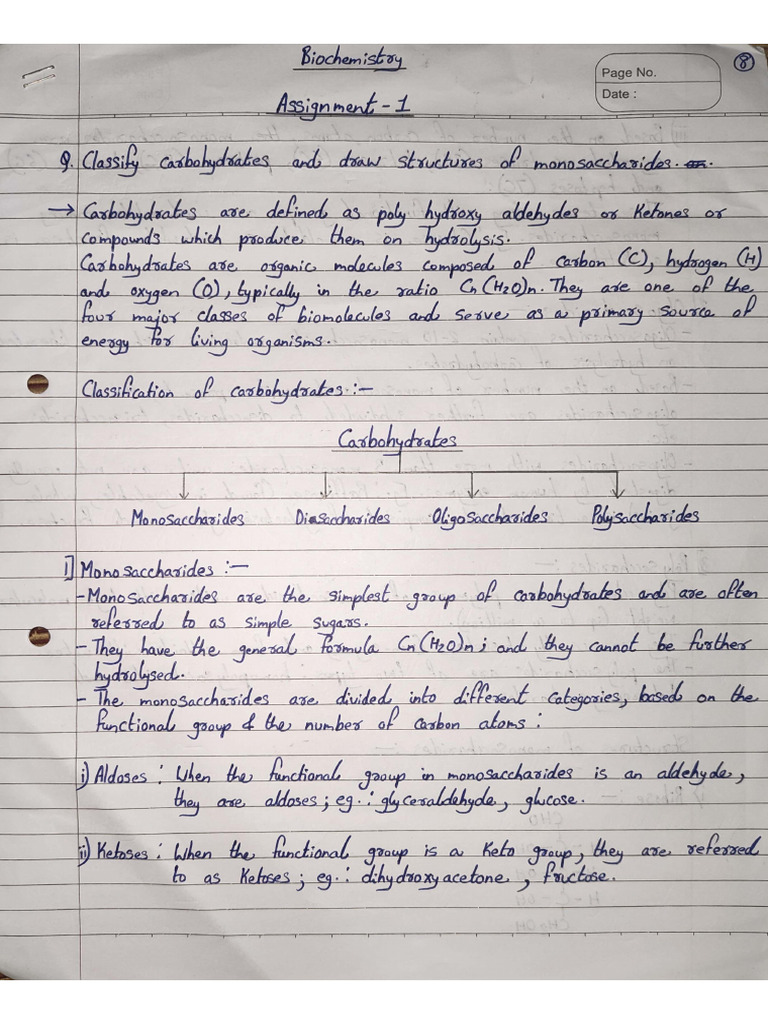 Biochemistry
8
Page No.
Date :
Assignment - 1
Q. Classify carbohydrates and draw structures of monosaccharides.
→ Carbohydrates are defined as poly hydroxy aldehydes or Ketones or
compounds which produce them on hydrolysis.
Carbohydrates are organic molecules composed of carbon (C), hydrogen (H)
and oxygen (O), typically in the ratio Cn(H2O)n. They are one of the
four major classes of biomolecules and serve as a primary source of
energy for living organisms.
Classification of carbohydrates :-
Carbohydrates
Monosaccharides Disaccharides Oligosaccharides Polysaccharides
1] Monosaccharides :-
- Monosaccharides are the simplest group of carbohydrates and are often
referred to as simple sugars.
- They have the general formula Cn(H2O)n ; and they cannot be further
hydrolysed.
- The monosaccharides are divided into different categories, based on the
functional group & the number of carbon atoms :
i) Aldoses : When the functional group in monosaccharides is an aldehyde,
they are aldoses ; eg. : glyceraldehyde, glucose.
ii) Ketoses : When the functional group is a Keto group, they are referred
to as Ketoses ; eg. : dihydroxyacetone , fructose.